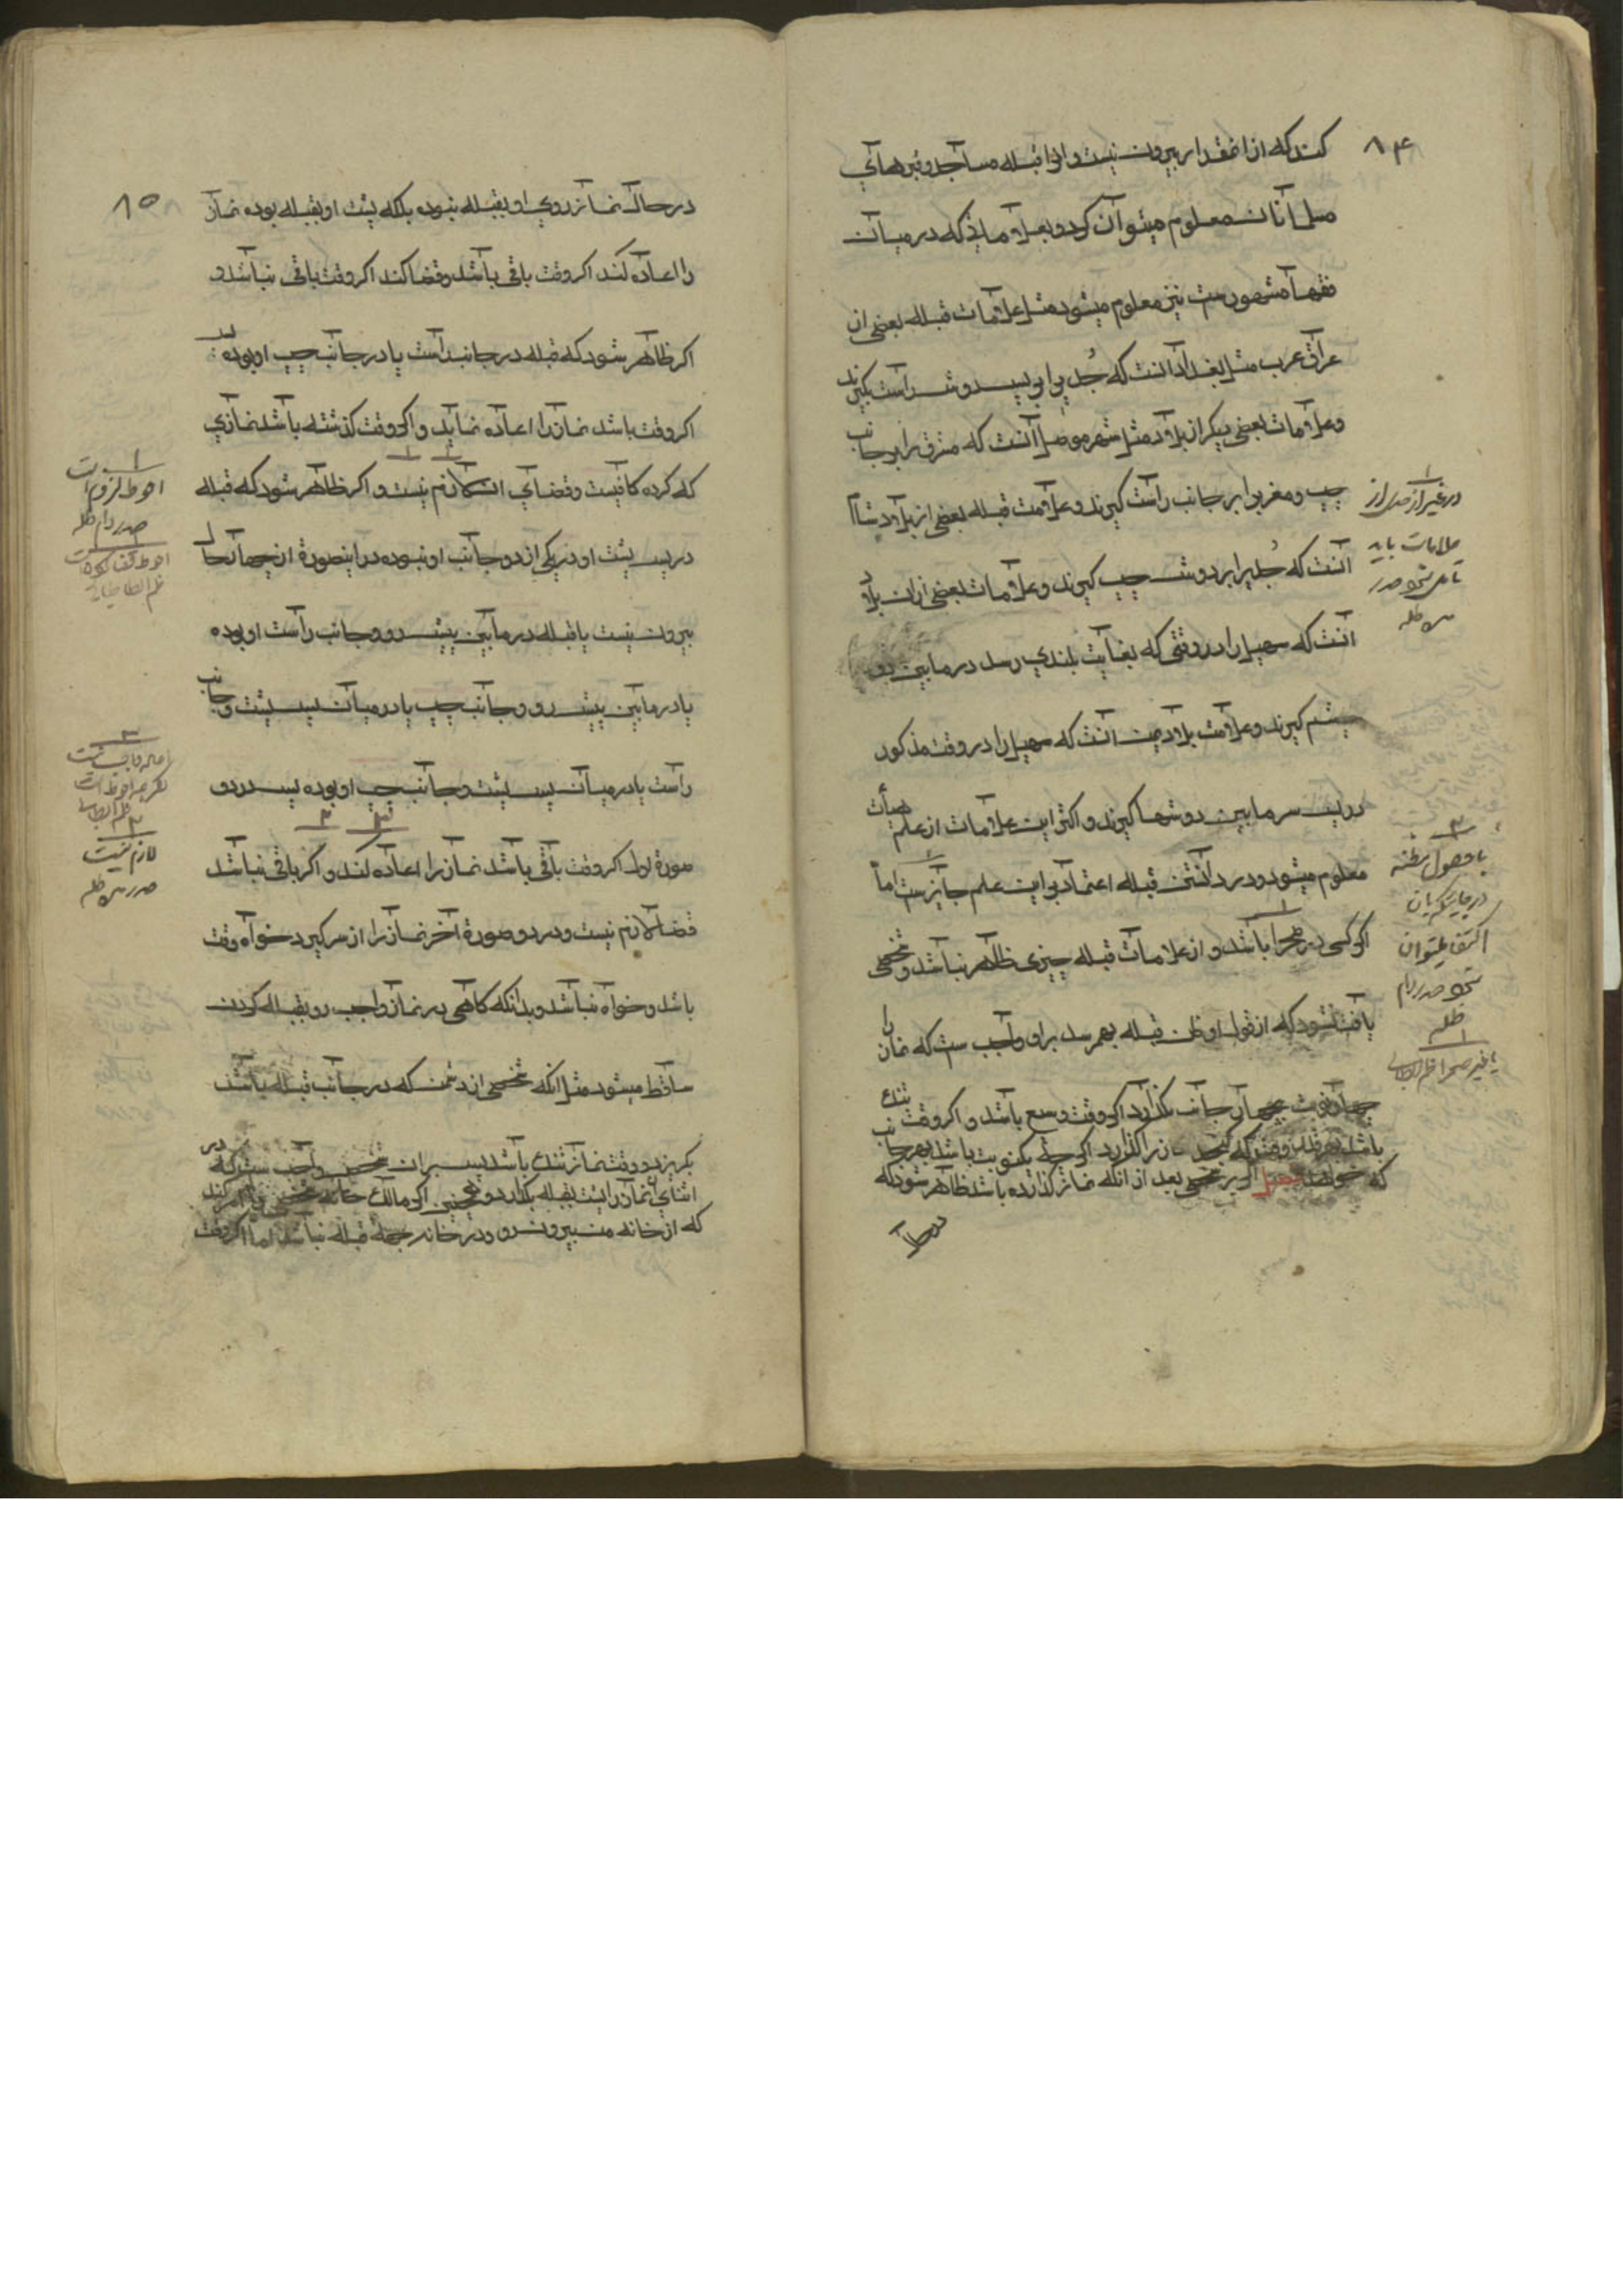 ۸۴
کند که از انمقدار بیرون نیست و از قبله مساجد و قبرهای
مسلمانان معلوم میتوان کرد و بعلاماتی که در میان
فقها مشهورست نیز معلوم میشود مثل علامات قبله بعضی از
عراق عرب مثل بغداد انست که جدی را بر پس دوش راست گیرند
و علامات بعضی دیگر از بلاد مثل شهر موصل انست که مشرق را بر جانب
چپ و مغرب را بر جانب راست گیرند و علامت قبله بعضی از بلاد شام
انست که جدیرا بر دوش چپ گیرند و علامات بعضی از ان بلاد
انست که سهیل را در وقتی که بغایت بلندی رسد در مابین دو
چشم گیرند و علامت بلاد یمن انست که سهیل را در وقت مذکور
در پس سر مابین دوشها گیرند و اکثر این علامات از علم هیأت
معلوم میشود و در دانستن قبله اعتماد بر این علم جایز ست اما
اگر کسی در صحرا باشد و از علامات قبله چیزی ظاهر نباشد و شخصی
یافت نشود که از قول او ظن قبله بهم رسد براو واجب ست که نماز را
چهار نوبت بچهار جانب بگذارد اگر وقت وسیع باشد و اگر وقت تنک
باشد بهر قدر وقت که گنجد نماز را گذارد اگر چه یکنوبت باشد بهر جانب
که خواهد فصل اگر بر شخصی بعد از انکه نماز گذارده باشد ظاهر شود که
در حا
در غیر از جدی از
علامات باید
تامل شود صدر
با حصول مظنه
اکتفا میتوان
نمود صدر دام
ظله
یا غیر صحرا
۸۵
در حال نماز روی او بقبله نبوده بلکه پشت او بقبله بوده نماز
را اعاده کند اکر وقت باقی باشد و قضا کند اکر وقت باقی نباشد و
اکر ظاهر شود که قبله در جانب راست یا در جانب چپ او بوده
اکر وقت باشد نماز را اعاده نماید و اکر وقت گذشته باشد نمازی
که کرده کافیست و قضای ان لازم نیست و اکر ظاهر شود که قبله
در پس پشت او در یکی از دو جانب او نبوده در اینصورة از چهار حال
بیرون نیست یا قبله در مابین پیش رو و جانب راست او بوده
یا در مابین پیش رو و جانب چپ یا در میان پس پشت و جانب
راست یا در میان پس پشت و جانب چپ او بوده پس در دو
صورة اول اکر وقت باقی باشد نماز را اعاده کند و اکر باقی نباشد
قضا لازم نیست و در دو صورة آخر نماز را از سر گیرد خواه وقت
باشد و خواه نباشد و بدانکه کاهی در نماز واجب رو بقبله کردن
ساقط میشود مثل انکه شخصی از دشمن که در جانب قبله باشد
بکریزد و وقت نماز تنک باشد پس بران شخص واجب ست که در
اثنای نماز پشت بقبله بکند و همچنین اکر مالک خانه شخصی را امر کند
که از خانه من بیرون رو و در خانه بجهة قبله نباشد اما اکر وقت
احوط لزوم است
صدر دام ظله
لازم نیست
صدر ظله